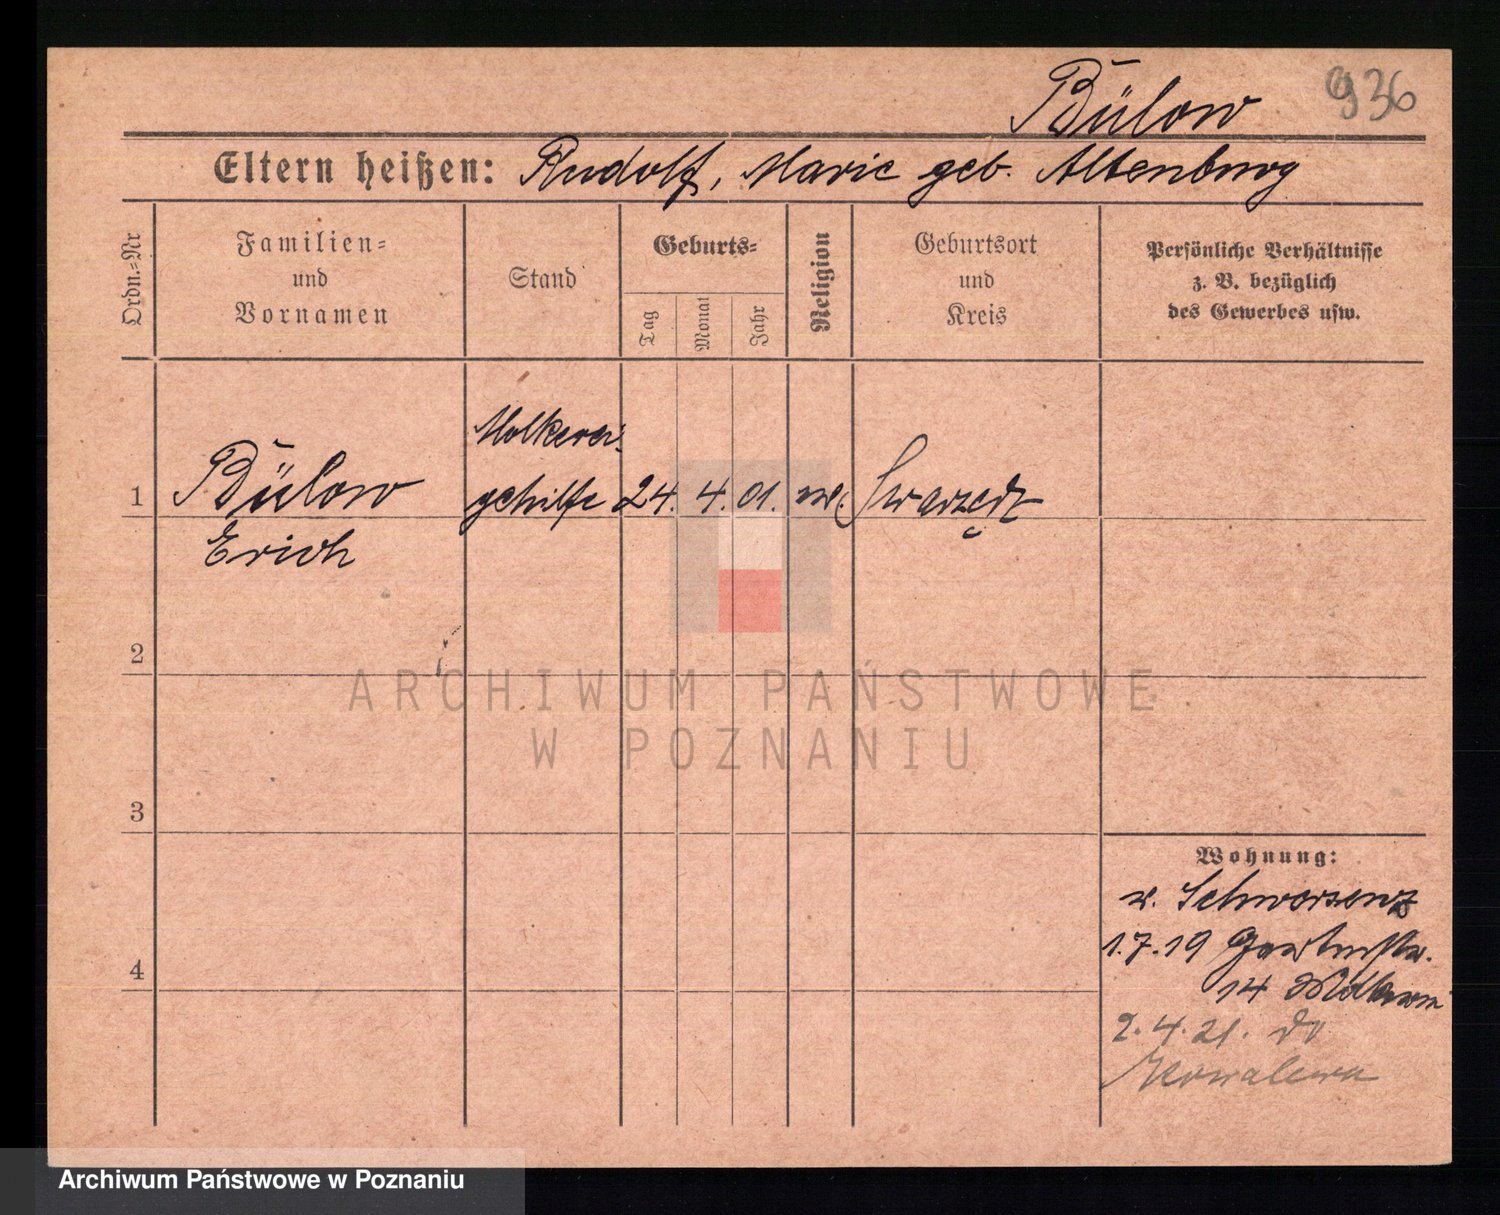 Bülow 936
Eltern heißen: Rudolf, Marie geb. Altenburg
Ordn.=Nr
Familien=
und
Vornamen
Stand
Geburts=
Tag
Monat
Jahr
Religion
Geburtsort
und
Kreis
Persönliche Verhältnisse
z. B. bezüglich
des Gewerbes usw.
1
Bülow
Erich
Molkerei-
gehilfe
24. 4. 01.
Swarzędz
2
3
4
Wohnung:
v. Schwersenz
1.7.19 Gartenstr.
14 Molkerei
2.4.21. do
Kowalewa
ARCHIWUM PAŃSTWOWE
W POZNANIU
Archiwum Państwowe w Poznaniu